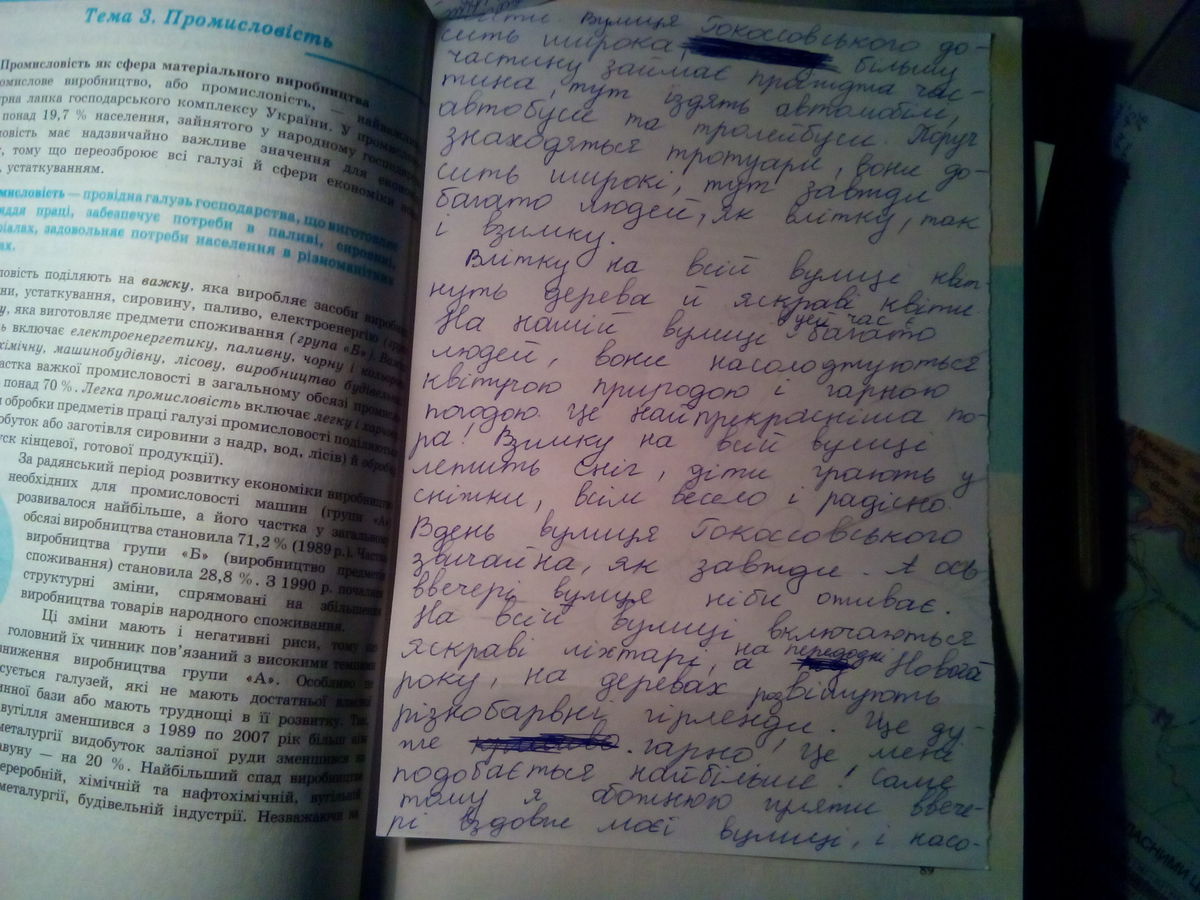 Тема 3. Промисловість
Промисловість як сфера матеріального виробництва
омислове виробництво, або промисловість, — найважли
рна ланка господарського комплексу України. У промисло
понад 19,7 % населення, зайнятого у народному господар
ловість має надзвичайно важливе значення для еконо
, тому що переозброює всі галузі й сфери економіки
, устаткуванням.
мисловість — провідна галузь господарства, що виготовляє
ряддя праці, забезпечує потреби в паливі, сировині,
ріалах, задовольняє потреби населення в різноманітних
ах.
ловість поділяють на важку, яка виробляє засоби виробни
ни, устаткування, сировину, паливо, електроенергію
у, яка виготовляє предмети споживання (група «Б»). Важ
ь включає електроенергетику, паливну, чорну і кольоро
хімічну, машинобудівну, лісову, виробництво будівель
астка важкої промисловості в загальному обсязі промисл
понад 70 %. Легка промисловість включає легку і харчов
обробки предметів праці галузі промисловості поділяють
обуток або заготівля сировини з надр, вод, лісів) й обробн
уск кінцевої, готової продукції).
За радянський період розвитку економіки виробництво
необхідних для промисловості машин (групи «А»)
розвивалося найбільше, а його частка у загальному
обсязі виробництва становила 71,2 % (1989 р.). Частка
виробництва групи «Б» (виробництво предметів
споживання) становила 28,8 %. З 1990 р. почалися
структурні зміни, спрямовані на збільшення
виробництва товарів народного споживання.
Ці зміни мають і негативні риси, тому що
головний їх чинник пов’язаний з високими темпами
ниження виробництва групи «А». Особливо це
сується галузей, які не мають достатньої власної
инної бази або мають труднощі в її розвитку. Так,
вугілля зменшився з 1989 по 2007 рік більш ніж
металургії видобуток залізної руди зменшився на
авуну — на 20 %. Найбільший спад виробництва
ереробній, хімічній та нафтохімічній, вугільній
металургії, будівельній індустрії. Незважаючи на
Вулиця Гокосовського до-
сить широка, більшу
частину займає проїжджа час-
тина, тут їздять автомобілі,
автобуси та тролейбуси. Поруч
знаходяться тротуари, вони до-
сить широкі, тут завжди
багато людей, як влітку, так
і взимку.
Влітку на всій вулиці квіт-
нуть дерева й яскраві квіти.
На нашій вулиці цей час багато
людей, вони насолоджуються
квітучою природою і гарною
погодою. Це найпрекрасніша по-
ра! Взимку на всій вулиці
лежить сніг, діти грають у
сніжки, всім весело і радісно.
Вдень вулиця Гокосовського
звичайна, як завжди. А ось
ввечері вулиця ніби оживає.
На всій вулиці включаються
яскраві ліхтарі, а на передодні Нового
року, на деревах розвішують
різнобарвні гірленди. Це ду-
же гарно! Це мені
подобається найбільше! Саме
тому я обожнюю гуляти ввече-
рі вздовж моєї вулиці, і насо-
89